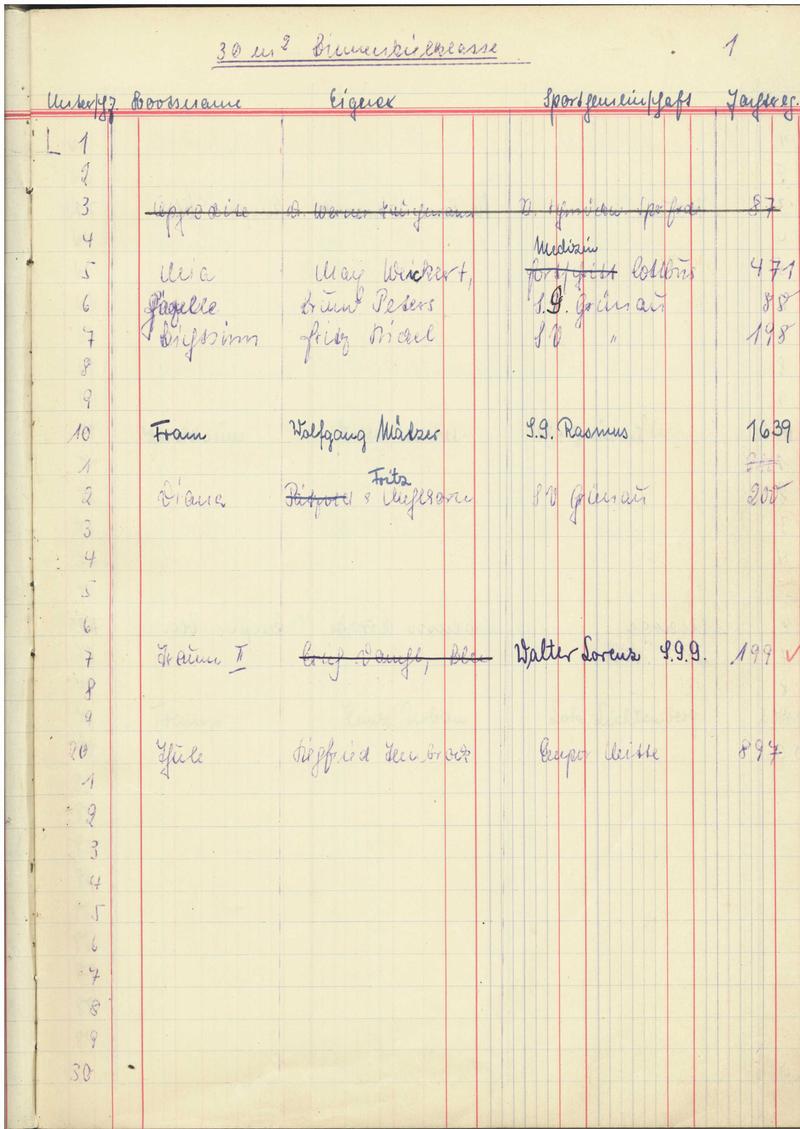 30 m² Binnenkielklasse 1
Bootsname Eigner Sportgemeinschaft
L 1
2
3 Aphrodite Dr. Werner 87
4
Medizin
5 Mia Max Wickert, Fortschritt Cottbus 471
6 Gazelle Bruno Peters S.G. Grünau 88
7 Leichtsinn Fritz Riedel SV " 198
8
9
10 Fram Wolfgang Mätzer S.G. Rasmus 1639
1
Fritz
2 Diana SV Grünau 200
3
4
5
6
7 Traum II Erich Walter Lorenz S.G.G. 199
8
9
20 Thule Siegfried Empor Mitte 897
1
2
3
4
5
6
7
8
9
30